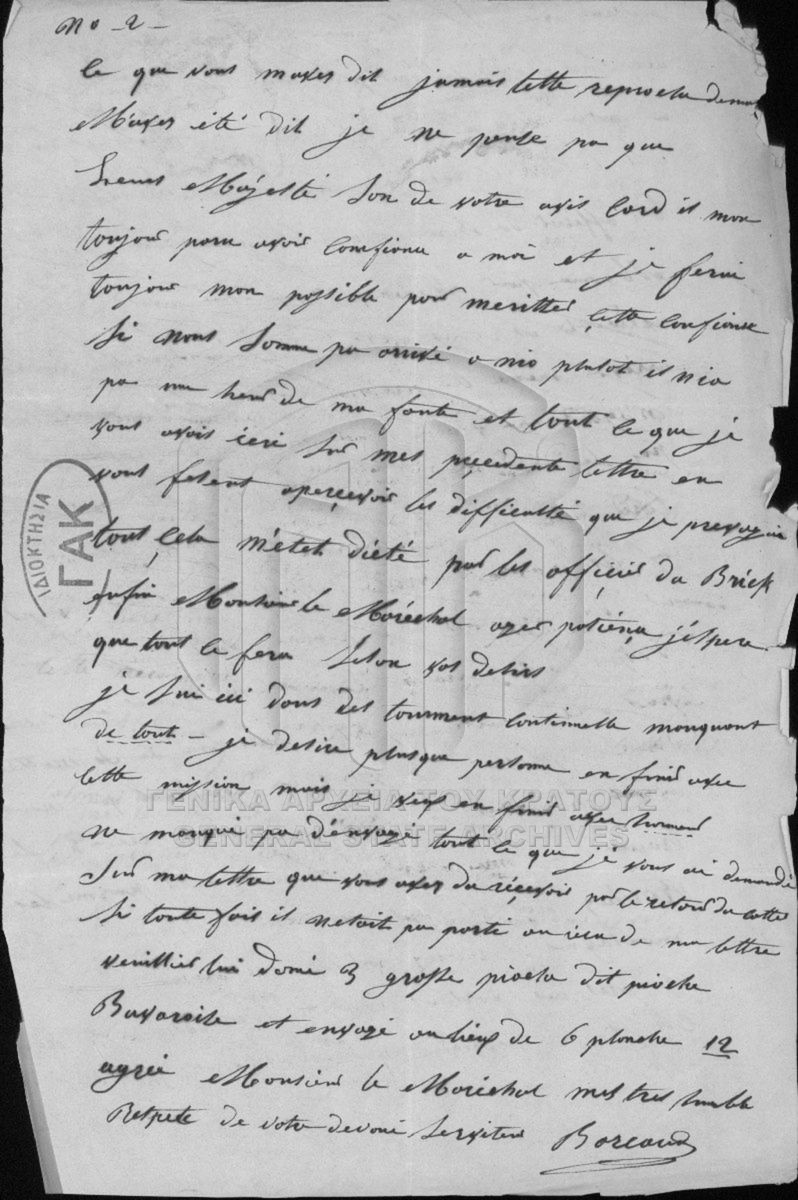 No -2-
ce que vous maves dit jamais cette reproche
M'aves été dit je ne pense pa que
Leurs Majesté Son de votre avis card il mon
toujour paru avoir comfiance a moi et je ferai
toujour mon possible pour meritter çette confiance
Si nous Somme pa arrivé a nio plutot il nia
pa une heure de ma faute et tout ce que je
vous avois icri Sur mes pręcedente lettre en
vous fesent aperçevoir les difficultté que je prevoyais
tout çela m'etet d'été par les offiçier du Brick
enfin Monsieur le Maréchal ayer patiença j'espere
que tout ce fera Selon vos desirs
je Sui ici dans des tourment continuelle manquant
de tout – je desire plusque personne en finir avec
cette mission mais je veux en finir avec honneur
ne manqué pa d'envoyé tout ce que je vous ai demandé
Sur ma lettre que vous aves du reçevoir par le retour du cotte
Si toute fois il netoit pa parti au reçu de ma lettre
veuillier lui donné 3 grosse pioche dit pioche
Bavaroise et envoyé au lieux de 6 planche 12
agréé Monsieur le Maréchal mes tres humble
Respete de votre devoué Serviteur
ΙΔΙΟΚΤΗΣΙΑ
ΓΑΚ
ΓΕΝΙΚΑ ΑΡΧΕΙΑ ΤΟΥ ΚΡΑΤΟΥΣ
GENERAL STATE ARCHIVES